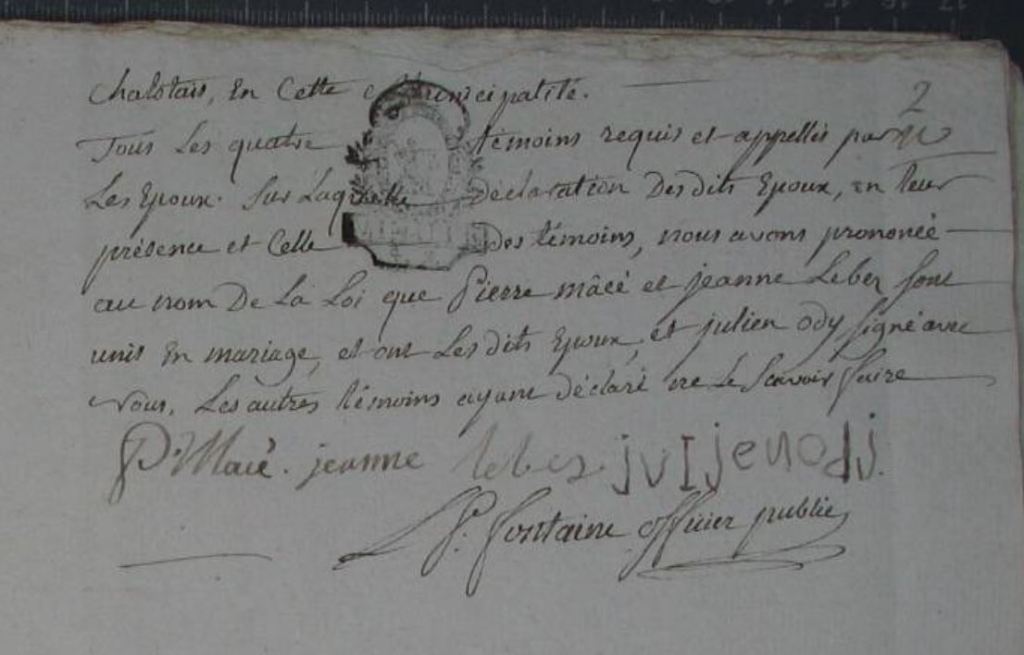 Chalotais, En Cette Municipalité.
2
Tous Les quatre témoins requis et appellés par
Les Epoux. Sur Laquelle Déclaration Desdits Epoux, en leur
présence et Celle Des témoins, nous avons prononcé
au nom De La Loi que Pierre mâcé et jeanne Leber sont
unis En mariage, et ont Les dits Epoux, et julien ody signé avec
Nous, Les autres témoins ayant Déclaré ne Le Scavoir faire
P. Macé. jeanne leber juljenodj
P. fontaine officier public